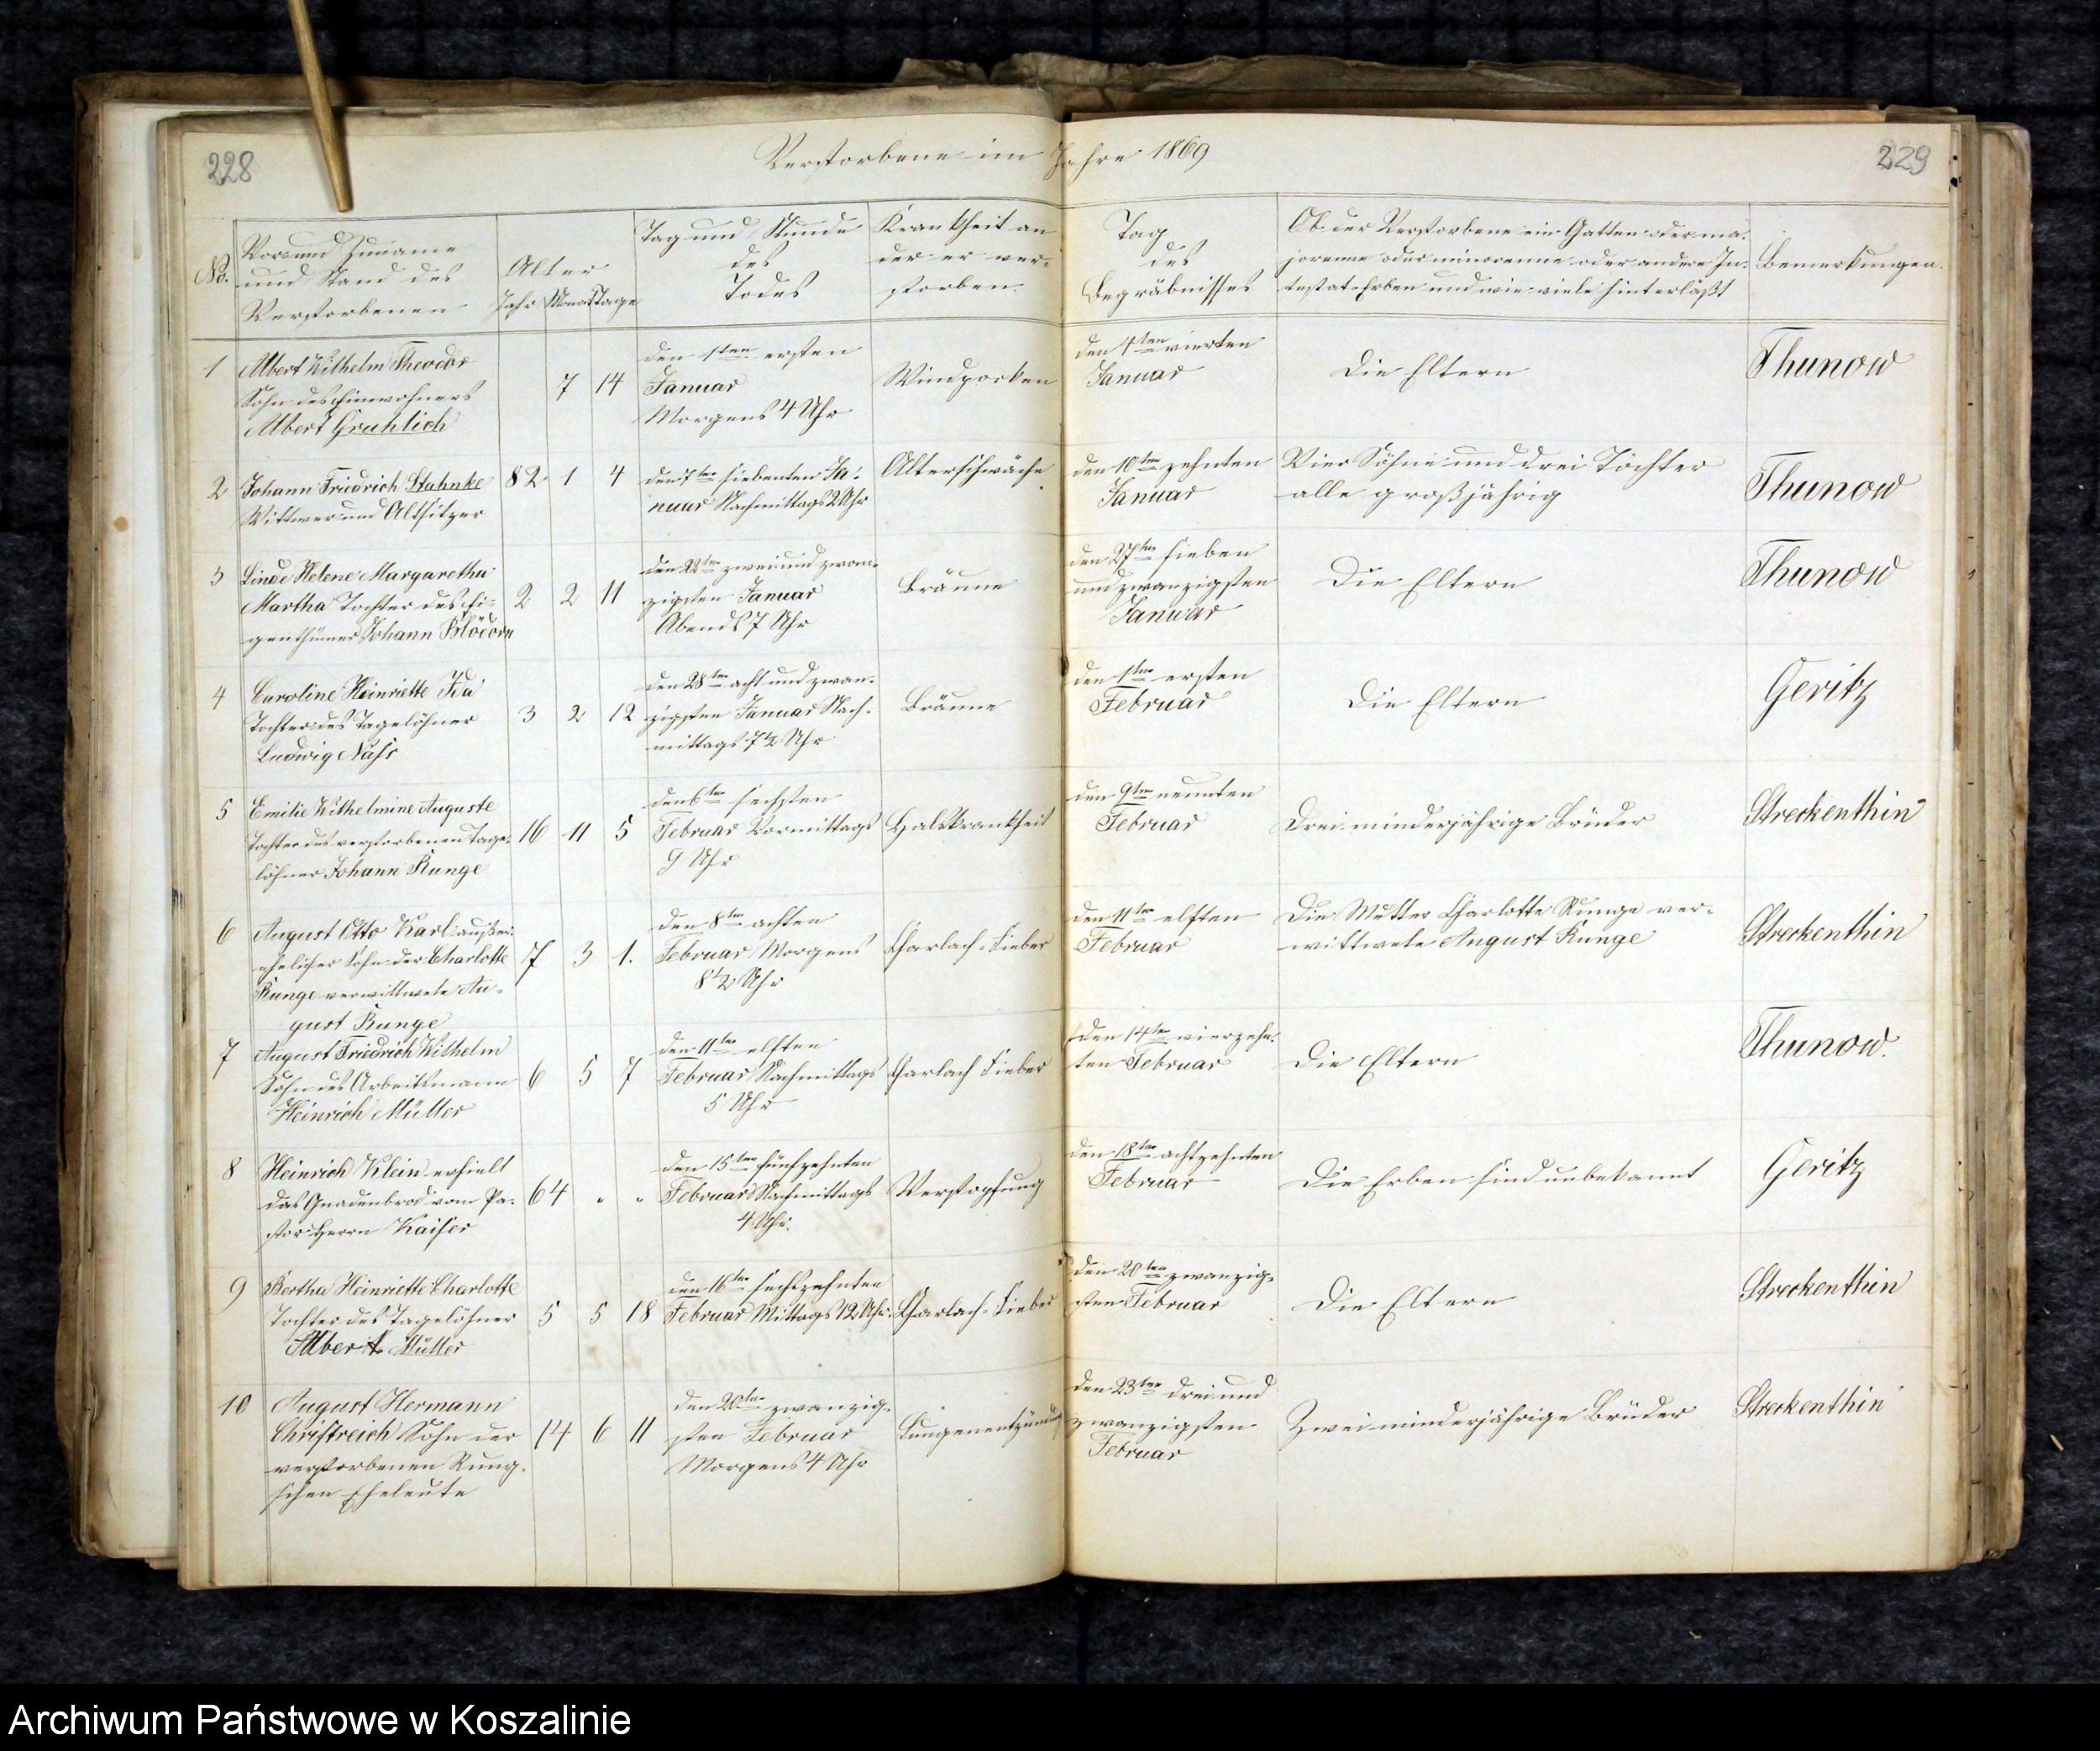 228
Verstorbene im Jahre 1869
229
No.
Vor und Zuname
und Stand des
Verstorbenen
Alter
Jahr Monat Tage
Tag und Stunde
des
Todes
Krankheit an
der er ver-
storben.
Tag
des
Begräbnisses
Ob der Verstorbene ein Gatten oder ma-
jorenne oder minorenne oder andere In-
testat-Erben und wie viele hinterläßt
Bemerkungen.
1
Albert Wilhelm Theodor
Sohn des Einwohners
Albert Gruhlich
7 14
den 1ten ersten
Januar
Morgens 4 Uhr
Windpocken
den 4ten vierten
Januar
Die Eltern
Thunow
2
Johann Friedrich Stuhnke
Wittwer und Altsitzer
82 1 4
den 7ten siebenten Ja-
nuar Nachmittags 2 Uhr
Altersschwäche
den 10ten zehnten
Januar
Vier Söhne und drei Töchter
alle großjährig
Thunow
3
Linde Helene Margaretha
Martha Tochter des Ei-
genthümer Johann Blödorn
2 2 11
den 22ten zwei und zwan-
zigsten Januar
Abends 7 Uhr
Bräune
den 27ten sieben
und zwanzigsten
Januar
Die Eltern
Thunow
4
Caroline Heinriette Ida
Tochter des Tagelöhner
Ludwig Nass
3 2 12
den 28ten acht und zwan-
zigsten Januar Nach-
mittags 7 1/2 Uhr
Bräune
den 1ten ersten
Februar
Die Eltern
Geritz
5
Emilie Wilhelmine Auguste
Tochter des verstorbenen Tage-
löhner Johann Runge
16 11 5
den 6ten sechsten
Februar Vormittags
9 Uhr
Halskrankheit
den 9ten neunten
Februar
Drei minderjährige Brüder
Streckenthin
6
August Otto Karl außer-
ehelicher Sohn der Charlotte
Runge verwittwete Au-
gust Runge
7 3 1.
den 8ten achten
Februar Morgens
8 1/2 Uhr
Scharlach-Fieber
den 11ten elften
Februar
Die Mutter Charlotte Runge ver-
wittwete August Runge
Streckenthin
7
August Friedrich Wilhelm
Sohn des Arbeitsmann
Heinrich Müller
6 5 7
den 11ten elften
Februar Nachmittags
5 Uhr
Scharlach Fieber
den 14ten vierzehn-
ten Februar
Die Eltern
Thunow.
8
Heinrich Klein erhielt
das Gnadenbrod vom Pa-
stor Herrn Kaiser
64 " "
den 15ten fünfzehnten
Februar Nachmittags
4 Uhr.
Verstopfung
den 18ten achtzehnten
Februar
Die Erben sind unbekannt
Geritz
9
Bertha Heinriette Charlotte
Tochter des Tagelöhner
Albert Müller
5 5 18
den 16ten sechszehnten
Februar Mittags 12 Uhr.
Scharlach-Fieber
den 20ten zwanzig-
sten Februar
Die Eltern
Streckenthin
10
August Hermann
Christreich Sohn der
verstorbenen Rung-
schen Eheleute
14 6 11
den 20ten zwanzig-
sten Februar
Morgens 4 Uhr
Lungenentzündung
den 23ten drei und
zwanzigsten
Februar
Zwei minderjährige Brüder
Streckenthin
Archiwum Państwowe w Koszalinie